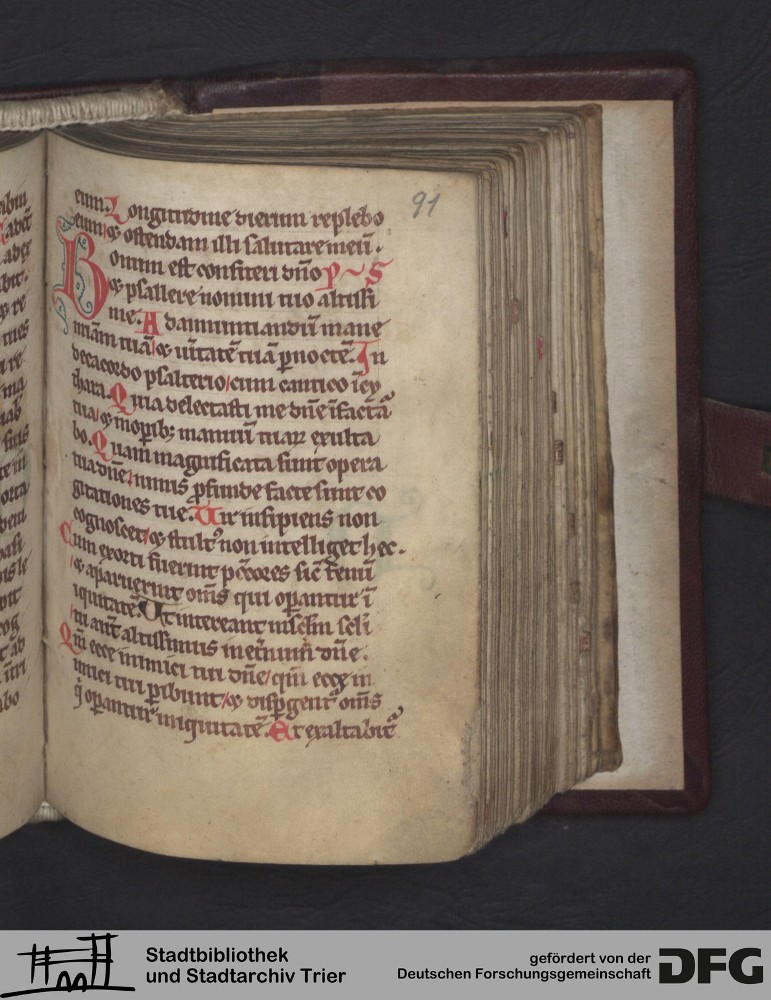 91
eum. Longitudine dierum replebo
eum / & ostendam illi salutare meū.
Bonum est confiteri dño P~S
& psallere nomini tuo altissi
me. Ad annuntiandū mane
miām tuā / & uītatē tuā p noctē. In
decacordo psalterio / cum cantico ī cy
thara. Quia delectasti me dñe ī factā
tua / & ī opib; manuū tuaꝝ exulta
bo. Quam magnificata sunt opera
tua dñe / nimis pfunde facte sunt co
gitationes tue. Vir insipiens non
cognoscet / & stult⁹ non intelliget hec.
Cum exorti fuerint pc̄cores sic̄ fenū
/ & aparuerint om̄s qui opantur ī
iquitatē. Ut intereant in sc̄lm sc̄li
tu aut̄ altissimus in et̄num dñe.
Qm̄ ecce inimici tui dñe / qm̄ ecce in
imici tui pibunt / & dispgent᷑ om̄s
q̇ opantur iniquitatē. Et exaltabit᷑
Stadtbibliothek
und Stadtarchiv Trier
gefördert von der
Deutschen Forschungsgemeinschaft
DFG